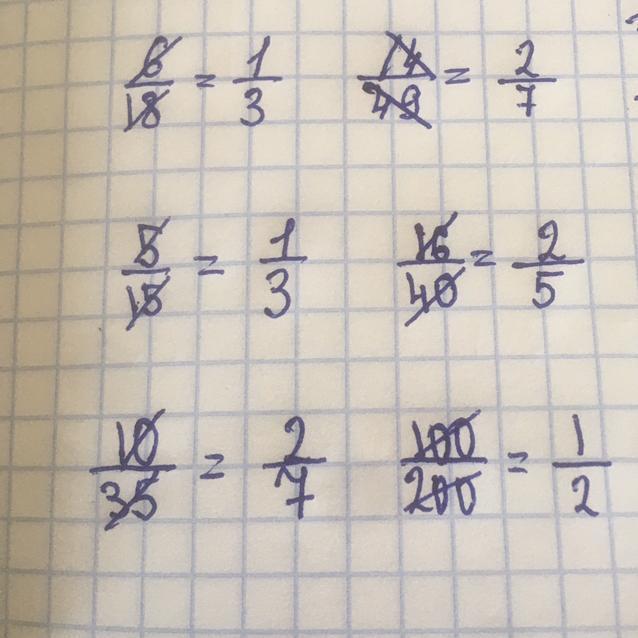 6/18 = 1/3 14/49 = 2/7
5/15 = 1/3 16/40 = 2/5
10/35 = 2/7 100/200 = 1/2